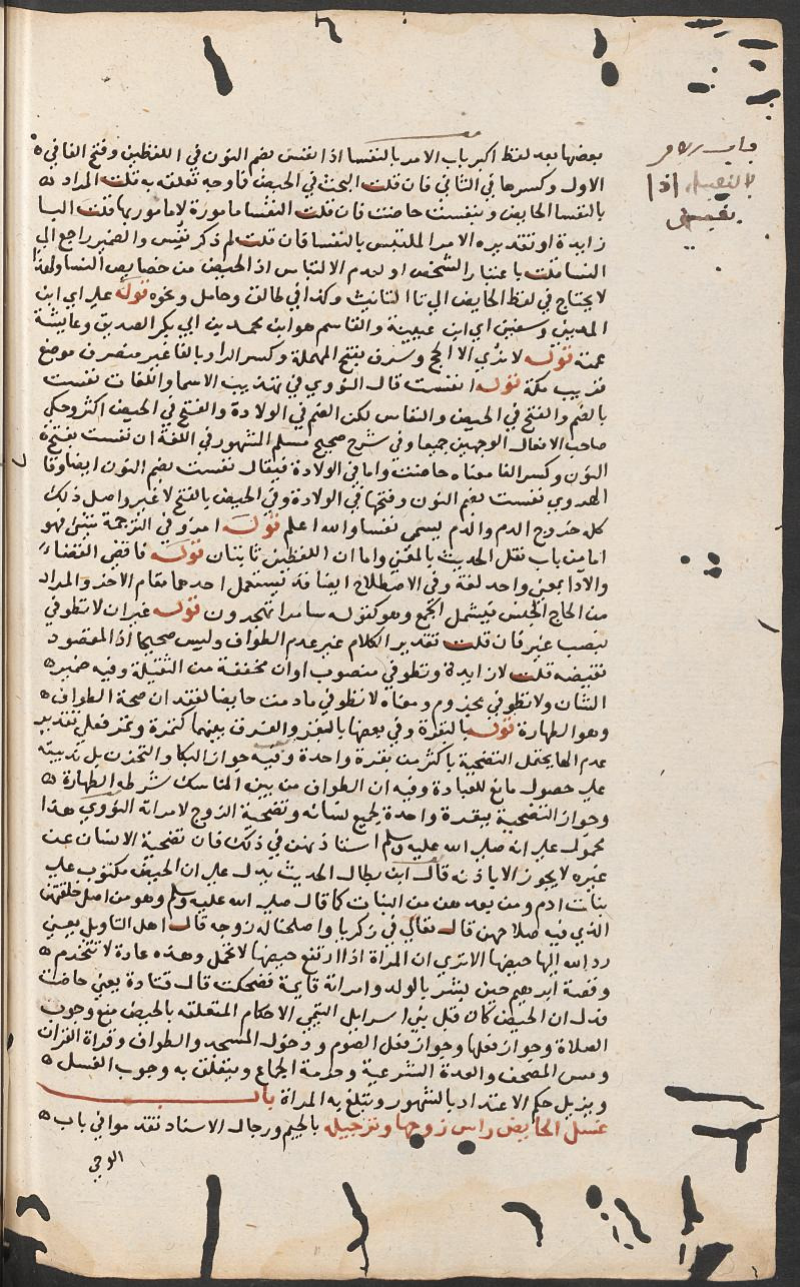 باب الامر
بالنفساء اذا
نفسن
بعضها بعد لفظ اكبر باب الامر بالنفسا اذا نفسن بضم النون في اللفظين وفتح الفا في
الاول وكسرها في الثاني فان قلت البحث في الحيض فاوجه تعلقه به قلت المراد
بالنفسا الحايض وبنفست حاضت فان قلت النفسا مامورة لا مامور بها قلت البا
زايدة او تقديره الامر الملتبس بالنفسا فان قلت لم ذكر نفس والضمير راجع الي
النسا قلت باعتبار الشخص او لعدم الالتباس اذ الحيض من خصايص النسا ولهذا
لا يحتاج في لفظ الحايض الي تا التانيث وكذا في طالق وحامل ونحوه قوله علي اي ابن
المديني وسفين اي ابن عيينة والقاسم هو ابن محمد بن ابي بكر الصديق وعايشة
عمته قوله لا نري الا الحج وسرف بفتح المهملة وكسر الرا وبالفا غير منصرف موضع
قريب مكة قوله انفست قال النووي في تهذيب الاسما واللغات نفست
بالضم والفتح في الحيض والنفاس لكن الضم في الولادة والفتح في الحيض اكثر وحكي
صاحب الافعال الوجهين جميعا وفي شرح صحيح مسلم المشهور في اللغة ان نفست بفتح
النون وكسر الفا معناه حاضت واما في الولادة فيقال نفست بضم النون ايضا وقا
الهروي نفست بضم النون وفتحها في الولادة وفي الحيض بالفتح لا غير واصل ذلك
كله خروج الدم والدم يسمي نفسا والله اعلم قوله امر وفي الترجمة شيئ فهو
اما من باب نقل الحديث بالمعني واما ان اللفظين ثابتان قوله فاقضي القضاء
والادا بمعني واحد لغة وفي الاصطلاح ايضا قد يستعمل احدهما مقام الاخر والمراد
من الحاج الجنس فيشمل الجمع وهو كقوله سامرا تهجرون قوله غير ان لا تطوفي
بنصب غير فان قلت تقدير الكلام غير عدم الطواف وليس صحيحا اذ المقصود
نقيضه قلت لا زايدة وتطوفي منصوب او ان مخففة من الثقيلة وفيه ضمير
الشان ولا تطوفي مجزوم ومعناه لا تطوفي ما دمت حايضا لفقدان صحة الطواف
وهو الطهارة قوله بالبقرة وفي بعضها بالبقر والفرق بينهما كتمرة وتمر فعلي تقدير
عدم الها يحتمل التضحية باكثر من بقرة واحدة وفيه جواز البكا والتحزن بل ندبيته
علي حصول مانع للعبادة وفيه ان الطواف من بين المناسك شرطه الطهارة
وجواز التضحية ببقرة واحدة لجميع نسائه وتضحية الزوج لامراته النووي هذا
محمول علي انه صلي الله عليه وسلم استاذنهن في ذلك فان تضحية الانسان عن
غيره لا يجوز الا باذنه قال ابن بطال الحديث يدل علي ان الحيض مكتوب علي
بنات ادم ومن بعدهن من البنات كما قال صلي الله عليه وسلم وهو من اصل خلقتهن
الذي فيه صلاحهن قال تعالي في زكريا واصلحنا له زوجه قال اهل التاويل يعني
رد الله اليها حيضها الا تري ان المراة اذا ارتفع حيضها لا تحمل وهذه عادة لا تنخرم
وقصة ابرهيم حين بشر بالولد وامراته قايمة فضحكت قال قتادة يعني حاضت
فدل ان الحيض كان قبل بني اسرايل التيمي الاحكام المتعلقه بالحيض منع وجوب
الصلاة وجواز فعلها وجواز فعل الصوم ودخول المسجد والطواف وقراة القران
ومس المصحف والعدة الشرعية وحرمة الجماع ويتعلق به وجوب الغسل
ويزيل حكم الاعتداد بالشهور وتبلغ به المراة باب
غسل الحايض راس زوجها وترجيله بالجيم ورجال الاسناد تقدموا في باب
الوحي